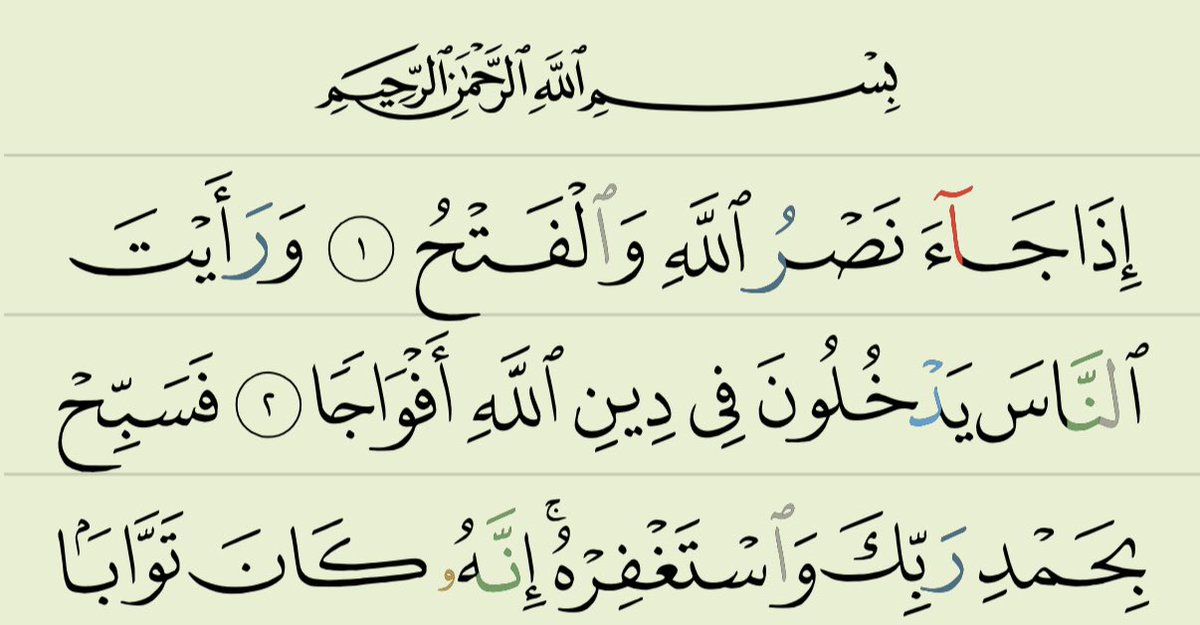 بِسْمِ ٱللَّهِ ٱلرَّحْمَٰنِ ٱلرَّحِيمِ
إِذَا جَآءَ نَصْرُ ٱللَّهِ وَٱلْفَتْحُ ١ وَرَأَيْتَ
ٱلنَّاسَ يَدْخُلُونَ فِى دِينِ ٱللَّهِ أَفْوَاجًا ٢ فَسَبِّحْ
بِحَمْدِ رَبِّكَ وَٱسْتَغْفِرْهُ ۚ إِنَّهُۥ كَانَ تَوَّابَۢا